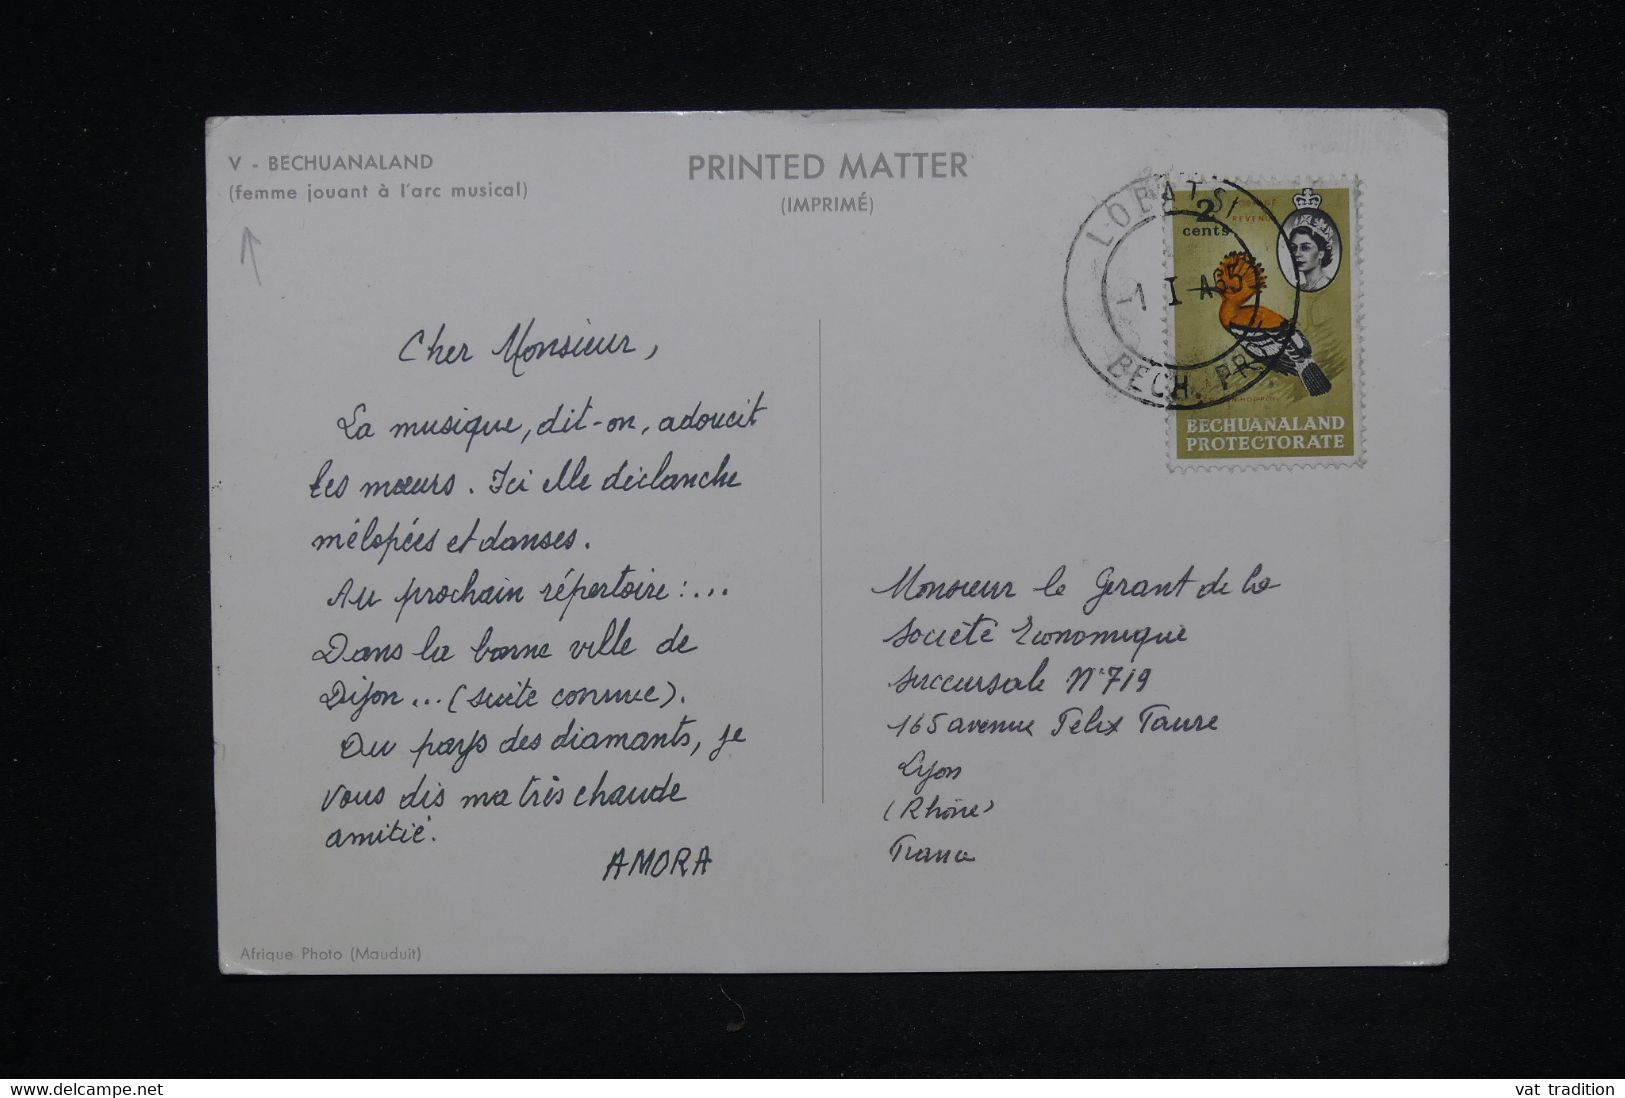 V - BECHUANALAND
(femme jouant à l'arc musical)
PRINTED MATTER
(IMPRIMÉ)
LOBATSI
1 I A65
BECH. PR
2
REVENUE
cents
BECHUANALAND
PROTECTORATE
Cher Monsieur,
La musique, dit-on, adoucit
les mœurs. Ici elle déclanche
mélopées et danses.
Au prochain répertoire :...
Dans la bonne ville de
Dijon... (suite connue).
Du pays des diamants, je
vous dis ma très chaude
amitié.
AMORA
Monsieur le Gerant de la
Société Economique
Succursale N°719
165 avenue Felix Faure
Lyon
(Rhône)
France
Afrique Photo (Mauduit)
delcampe.net
vat_tradition